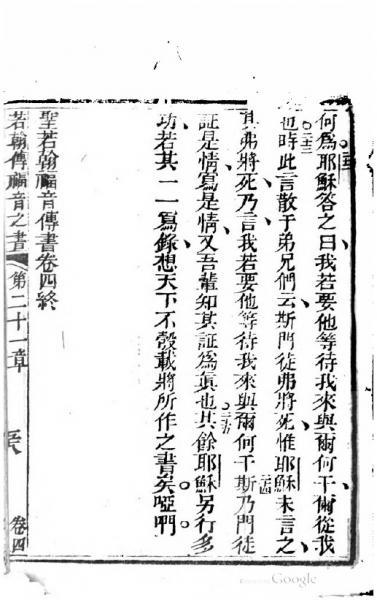 何爲耶穌答之曰我若要他等待我來與爾何干爾從我
也時此言散于弟兄們云斯門徒弗將死惟耶穌未言之
其弗將死乃言我若要他等待我來與爾何干斯乃門徒
証是情寫是情又吾輩知其証爲眞也其餘耶穌另行多
功若其一一寫錄想天下不彀載將所作之書矣啞門
聖若翰福音傳書卷四終
若翰傳福音之書 第二十一章 卷四
Google